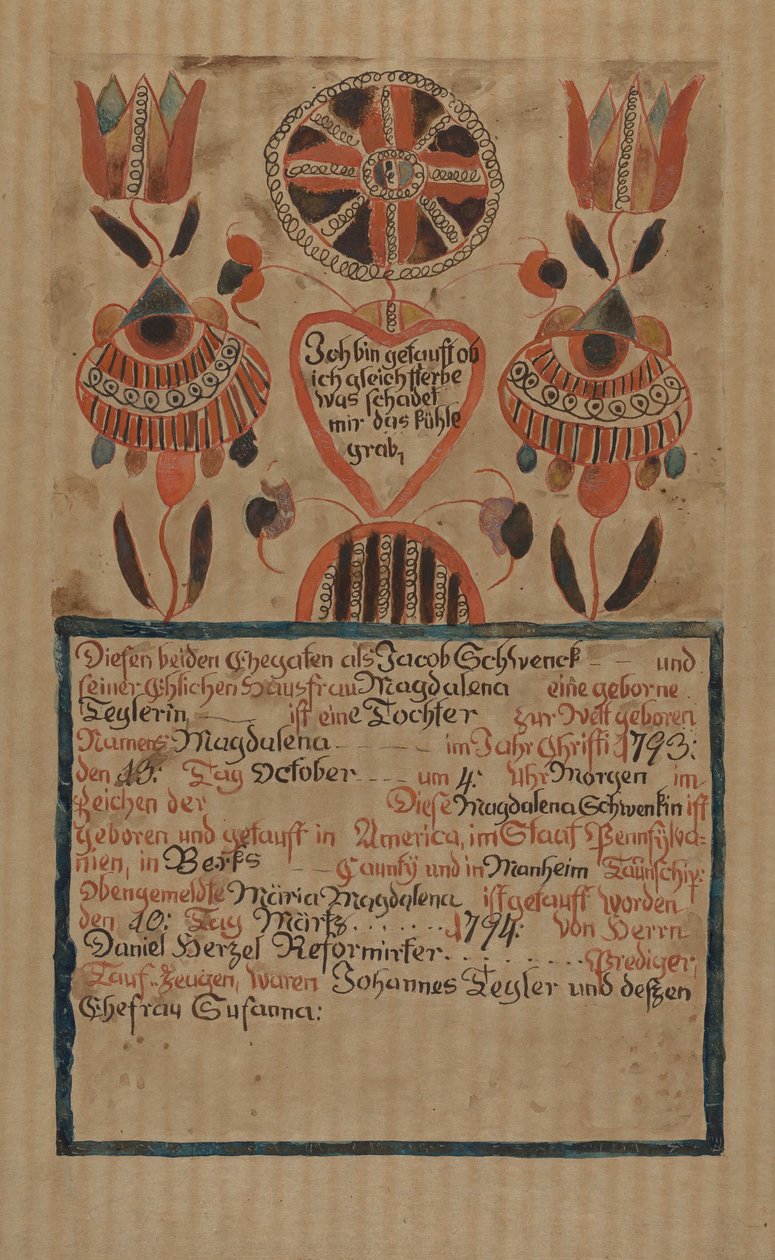 Ich bin getauft ob
ich gleich sterbe
was schadet
mir das kühle
grab,
Diesen beiden Ehegaten als Jacob Schwenck und
seiner Ehlichen Hausfrau Magdalena eine geborne
Teglerin, ist eine Tochter zur Welt geboren
Namens Magdalena im Jahr Christi 1793:
den 13: Tag October um 4: Uhr Morgen im
Zeichen der Diese Magdalena Schwenkin ist
geboren und getauft in America, im Staat Pennsylva=
nien, in Berks Caunty und in Manheim Taunschip:
Obengemeldte Maria Magdalena ist getauft worden
den 10: Tag Märtz. . . . . . . 1794: von Herrn
Daniel Herzel Reformirter. . . . . . . . . Prediger,
Tauf-Zeugen, waren Johannes Tegler und deszen
Ehefrau Susanna: